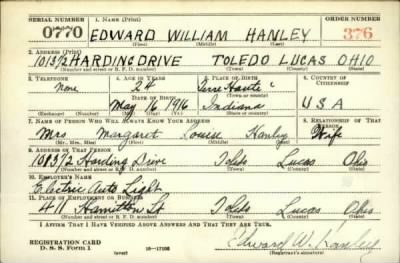 SERIAL NUMBER 1. NAME (Print) ORDER NUMBER
0770 EDWARD WILLIAM HANLEY 376
(First) (Middle) (Last)
2. ADDRESS (Print)
1013½ HARDING DRIVE TOLEDO LUCAS OHIO
(Number and street or R. F. D. number) (Town) (County) (State)
3. TELEPHONE 4. AGE IN YEARS 5. PLACE OF BIRTH 6. COUNTRY OF CITIZENSHIP
None 24 Terre Haute
DATE OF BIRTH (Town or county)
May 16 1916 Indiana U S A
(Mo.) (Day) (Yr.) (State or country)
7. NAME OF PERSON WHO WILL ALWAYS KNOW YOUR ADDRESS 8. RELATIONSHIP OF THAT PERSON
Mrs Margaret Louise Hanley Wife
(Mr., Mrs., Miss) (First) (Middle) (Last)
9. ADDRESS OF THAT PERSON
1013½ Harding Drive Toledo Lucas Ohio
(Number and street or R. F. D. number) (Town) (County) (State)
10. EMPLOYER'S NAME
Electric Auto Light
11. PLACE OF EMPLOYMENT OR BUSINESS
411 Hamilton St Toledo Lucas Ohio
(Number and street or R. F. D. number) (Town) (County) (State)
I AFFIRM THAT I HAVE VERIFIED ABOVE ANSWERS AND THAT THEY ARE TRUE.
REGISTRATION CARD
D. S. S. Form 1 (over) 16-17105 Edward W. Hanley
(Registrant's signature)